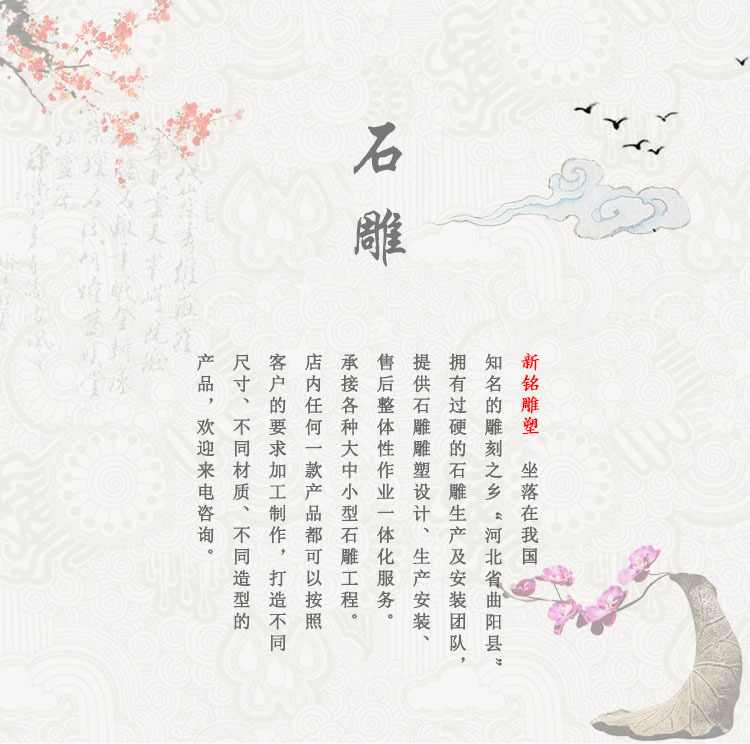 石雕
新铭雕塑 坐落在我国
知名的雕刻之乡“河北省曲阳县”
拥有过硬的石雕生产及安装团队，
提供石雕雕塑设计、生产安装、
售后整体性作业一体化服务。
承接各种大中小型石雕工程。
店内任何一款产品都可以按照
客户的要求加工制作，打造不同
尺寸、不同材质、不同造型的
产品，欢迎来电咨询。